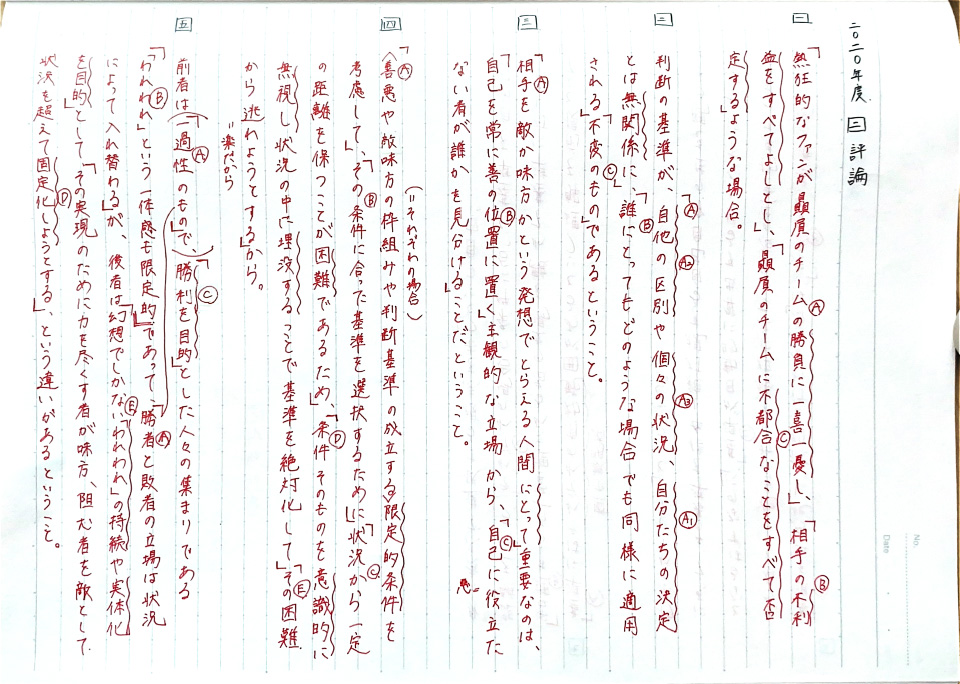 二〇二〇年度 三 評論
一
「熱狂的なファンが贔屓のチームの勝負に一喜一憂し、「相手の不利
益をすべてよしとし」、「贔屓のチームに不都合なことをすべて否
定する」ような場合。
二
判断の基準が、「自他の区別や個々の状況、自分たちの決定
とは無関係に、「誰にとってもどのような場合でも同様に適用
される」「不変のもの」であるということ。
三
「相手を敵か味方かという発想でとらえる人間にとって重要なのは、
自己を常に善の位置に置く」主観的な立場から、「自己に役立た
ない者が誰かを見分ける」ことだということ。
悪=
四
(=それぞれの場合)
「〈善悪や敵味方の枠組みや判断基準の成立する限定的条件を
考慮して」、「その条件に合った基準を選択するために」「状況から一定
の距離を保つことが困難であるため」、「条件そのものを意識的に
無視し状況の中に埋没することで基準を絶対化して」「その困難
から逃れようとする」から。
=楽だから
五
前者は(「一過性のもの」で、)「勝利を目的」とした人々の集まりである
「「われわれ」という一体感も限定的」であって、「勝者と敗者の立場は状況
によって入れ替わる」が、後者は「幻想でしかない」「「われわれ」の持続や実体化
を目的」として「その実現のために力を尽くす者が味方、阻む者を敵として
状況を超えて固定化しようとする」、という違いがあるということ。
A
B
C
A
A2
A3
A1
B
C
A
B
C
A
B
C
D
E
A
C
B
A
E
D
No.
Date